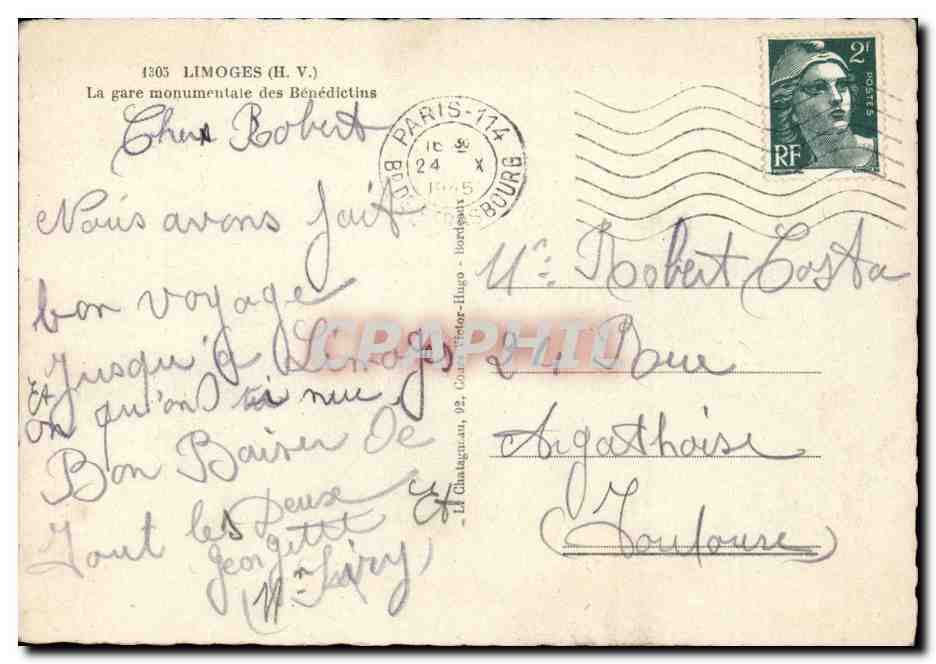 1305 LIMOGES (H. V.)
La gare monumentale des Bénédictins
Cher Robert
Nous avons fait
bon voyage
Jusqu'a Limoges
Et on qu'on
Bon Baiser De
Tout les Deux
Georgette Et
Mr
PARIS-114
16
24 X
1945
SBOURG
2F
POSTES
RF
Mr. Robert Costa
24 Rue
Agathoise
(Toulouse)
Chatagneau, 92, Cours Victor-Hugo - Bordeaux
CPAPHIL